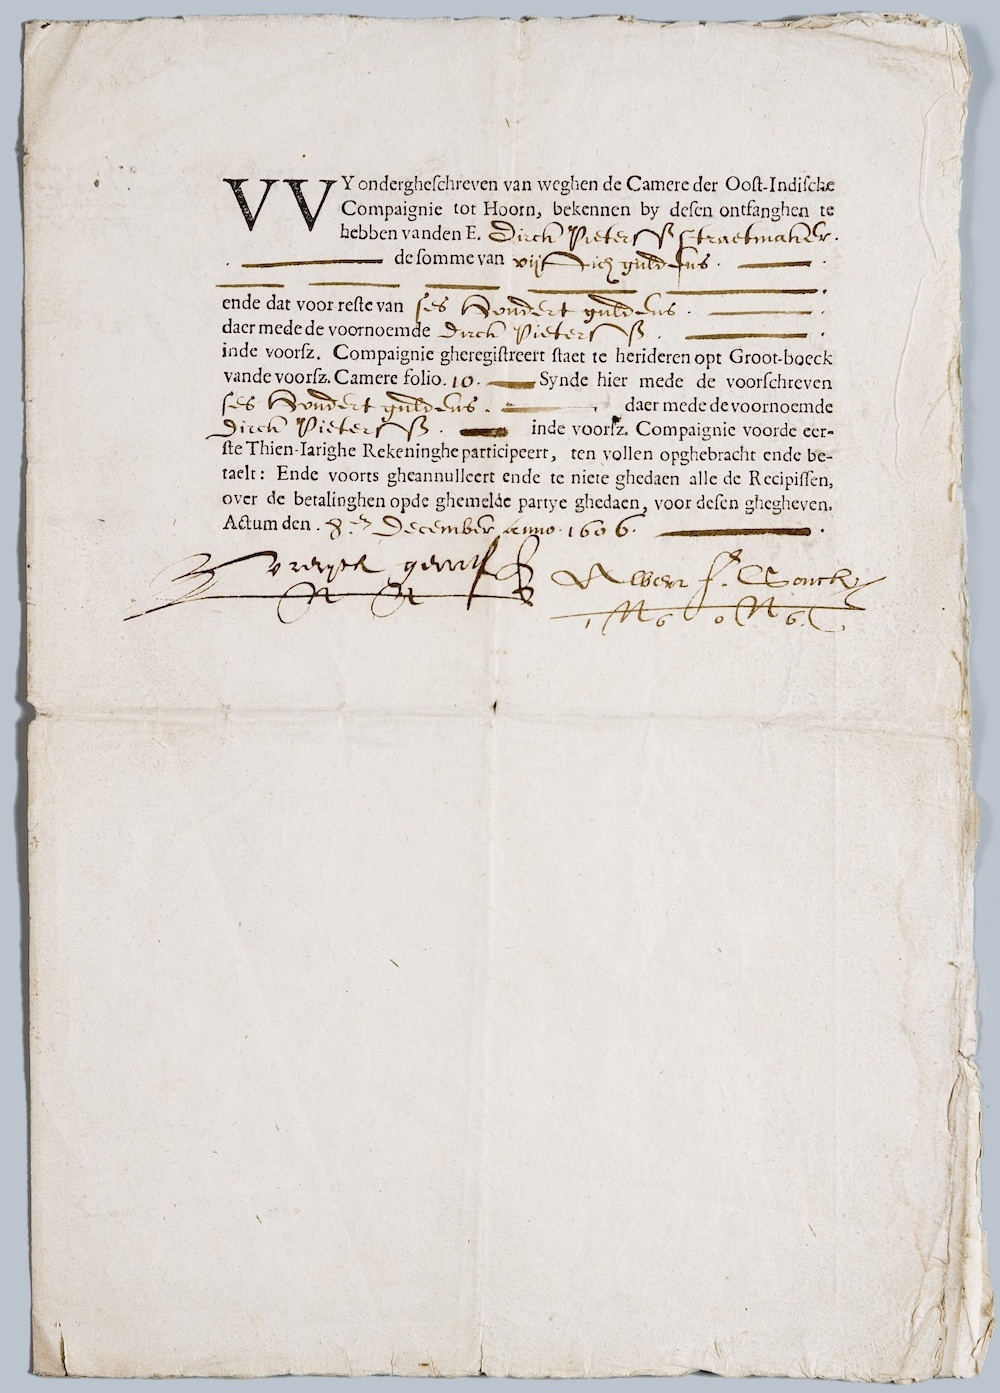 VVY ondergheſchreven van weghen de Camere der Ooſt-Indiſche
Compaignie tot Hoorn, bekennen by deſen ontfanghen te
hebben vanden E. Dirck Pieterſß Straetmaker.
de ſomme van vijftich guldens.
ende dat voor reſte van ſes hondert guldens.
daer mede de voornoemde Dirck Pieterſß
inde voorſz. Compaignie gheregiſtreert ſtaet te herideren opt Groot-boeck
vande voorſz. Camere folio. 10. Synde hier mede de voorſchreven
ſes hondert guldens. daer mede de voornoemde
Dirck Pieterſß. inde voorſz. Compaignie voorde eer-
ſte Thien-Iarighe Rekeninghe participeert, ten vollen opghebracht ende be-
taelt: Ende voorts gheannulleert ende te niete ghedaen alle de Recipiſſen,
over de betalinghen opde ghemelde partye ghedaen, voor deſen ghegheven.
Actum den. 8en December Anno. 1606.
1606